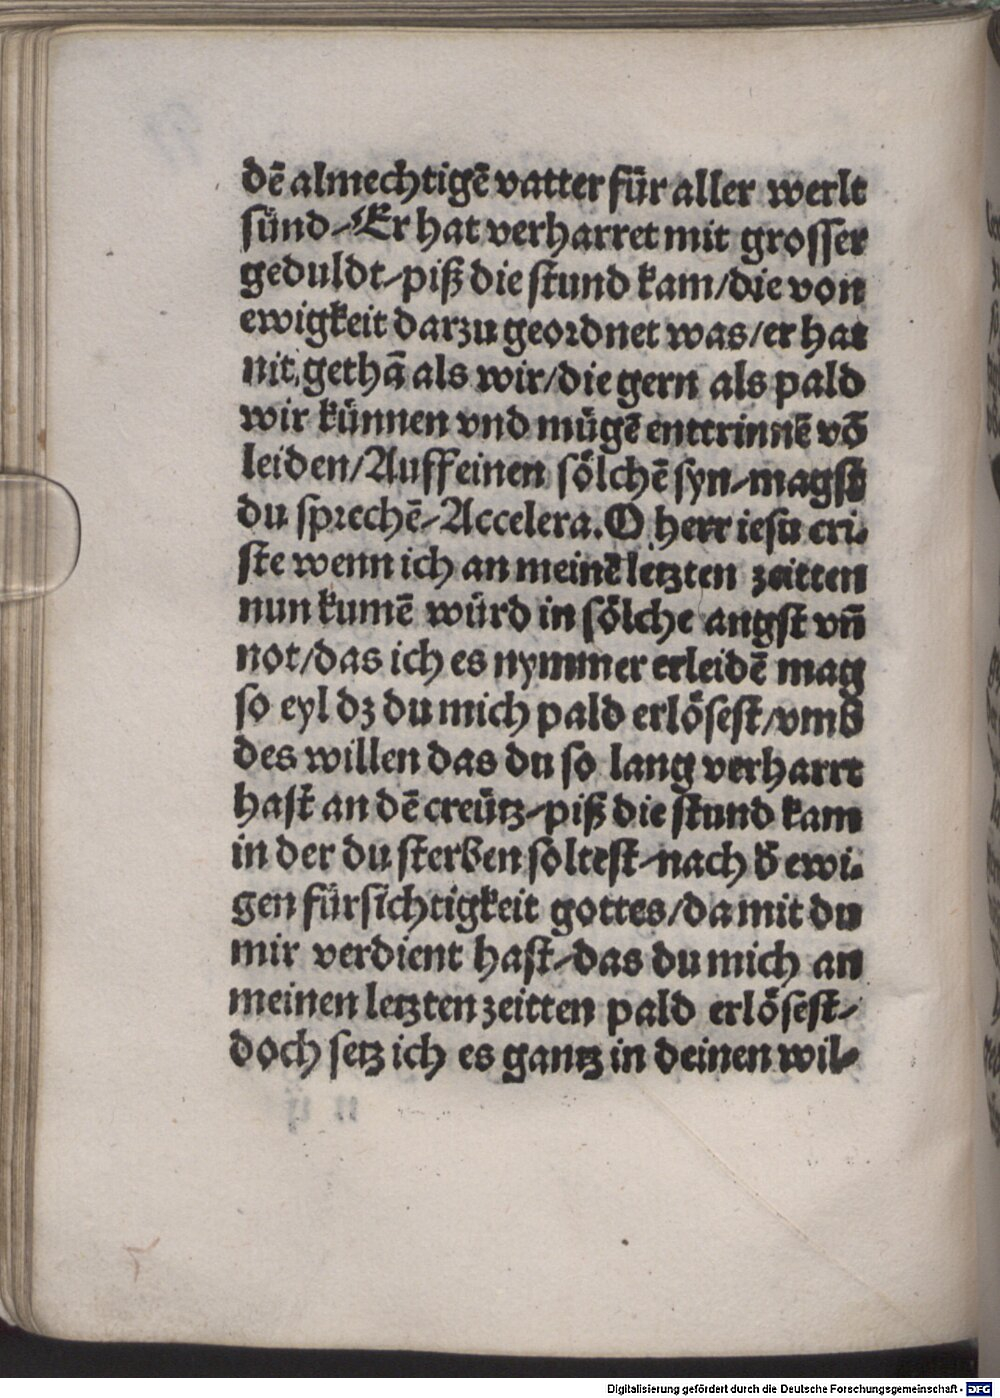 dē almechtigē vatter für aller werlt
sünd-Er hat verharret mit grosser
geduldt-piß die stund kam/die von
ewigkeit darzu geordnet was/er hat
nit gethā als wir/die gern als pald
wir künnen vnd mügē enttrinnē vō
leiden/Auff einen sölchē syn-magst
du sprechē-Accelera. O herr iesu cri-
ste wenn ich an meinē letzten zeitten
nun kumē würd in sölche angst vn̄
not/das ich es nymmer erleidē mag
so eyl dz du mich pald erlösest/vmb
des willen das du so lang verharrt
hast an dē creütz-piß die stund kam
in der du sterben soltest-nach d̄ ewi-
gen fürsichtigkeit gottes/da mit du
mir verdient hast-das du mich an
meinen letzten zeitten pald erlösest-
doch setz ich es gantz in deinen wil-
Digitalisierung gefördert durch die Deutsche Forschungsgemeinschaft - DFG